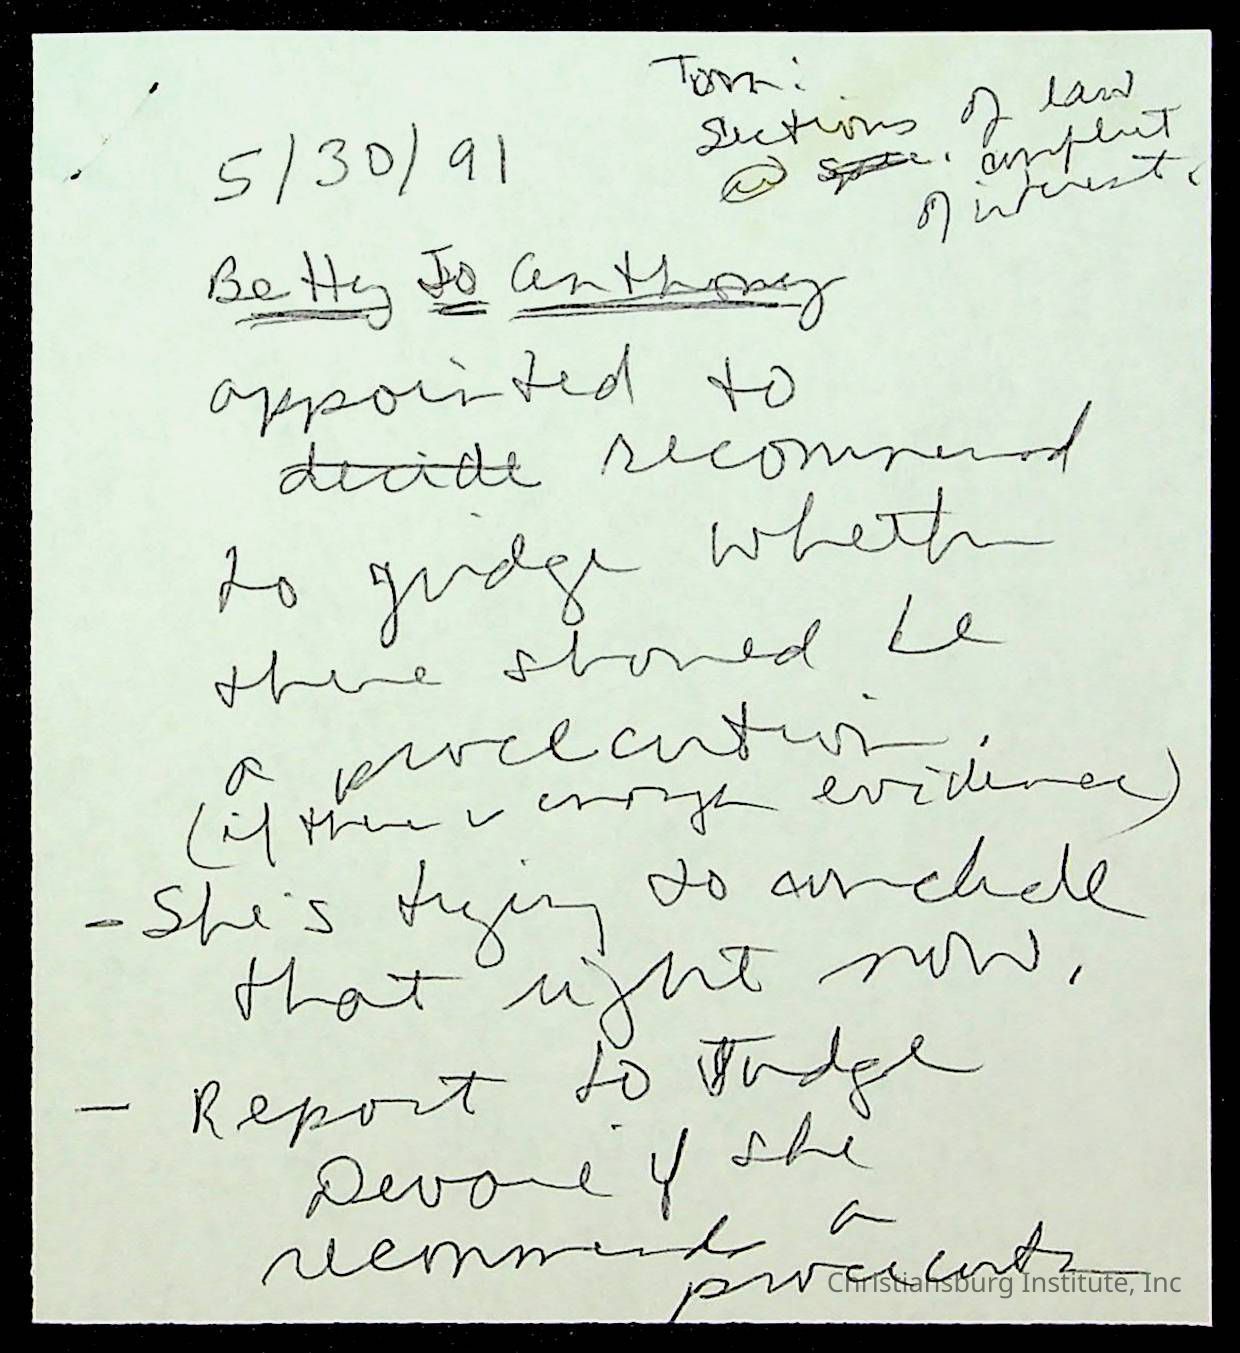 Tom:
Sections of law
conflict
of interest.
5/30/91
Betty Jo Anthony
appointed to
decide recommend
to judge whether
there should be
a prosecution.
(if there is enough evidence)
- She's trying to conclude
that right now.
- Report to Judge
Devore if she
recommends a
prosecution
Christiansburg Institute, Inc